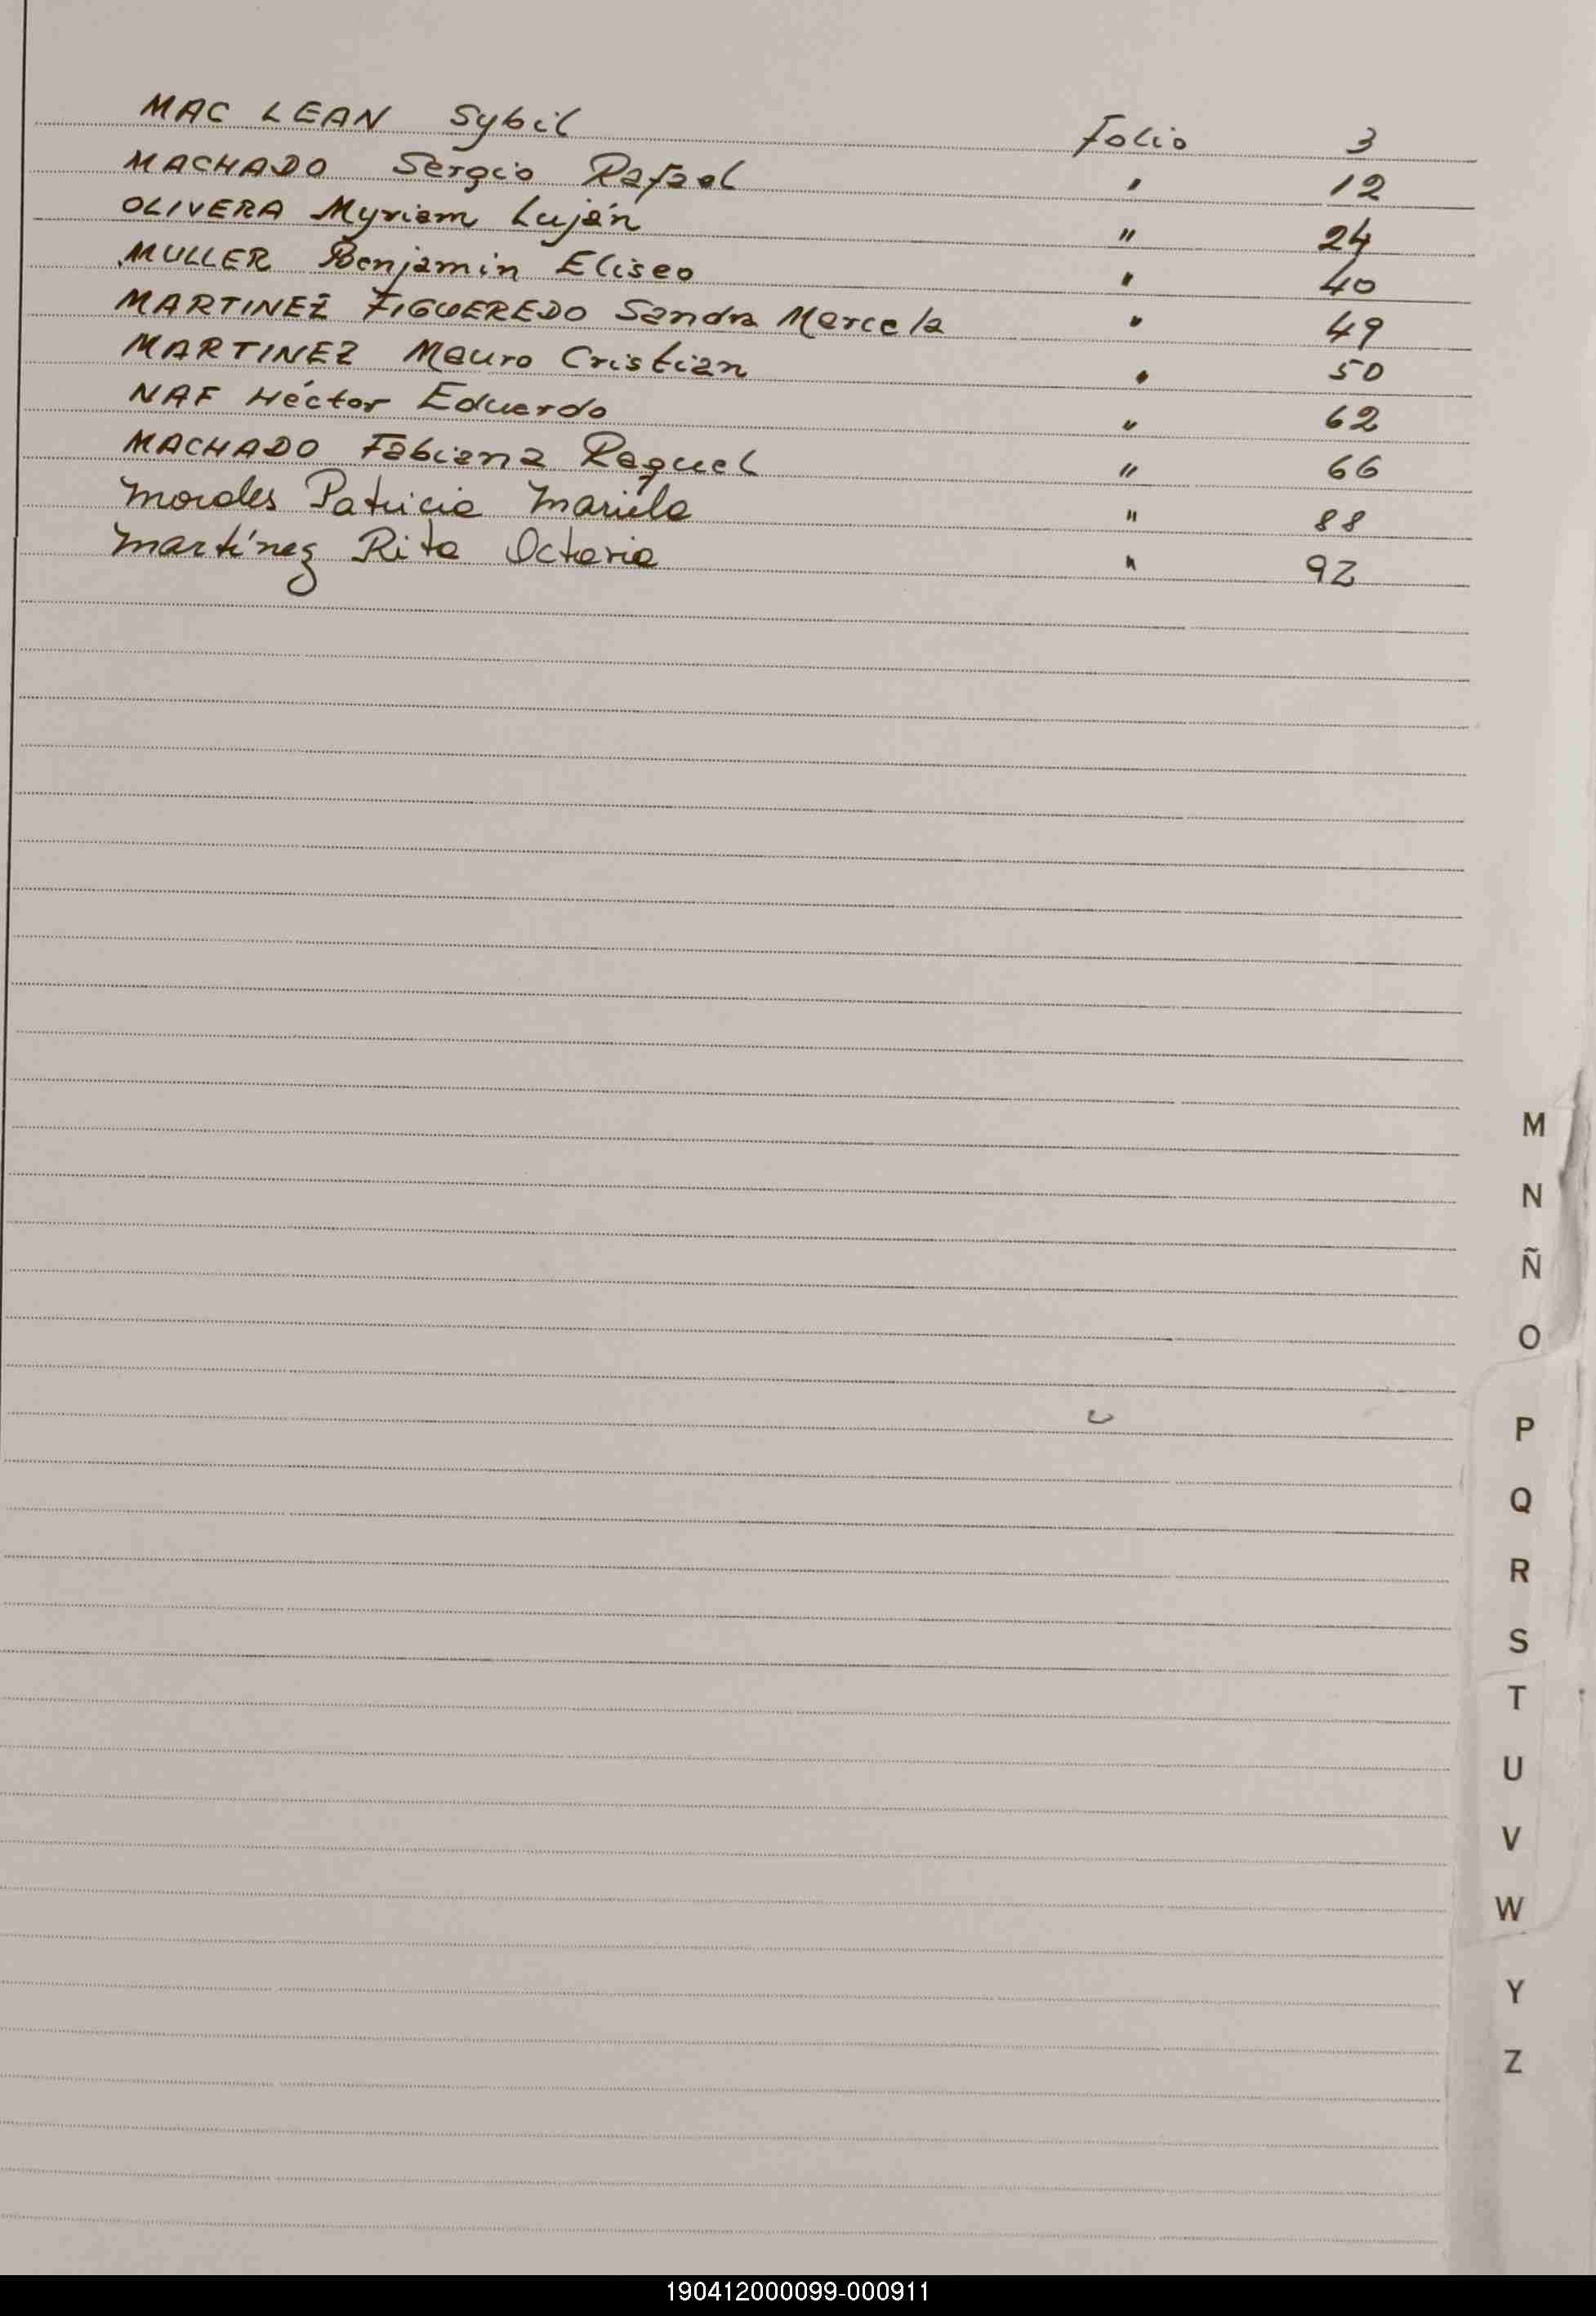 MAC LEAN Sybil Folio 3
MACHADO Sergio Rafael " 12
OLIVERA Myriam Luján " 24
MULLER Benjamin Eliseo " 40
MARTINEZ FIGUEREDO Sandra Marcela " 49
MARTINEZ Mauro Cristian " 50
NAF Héctor Eduardo " 62
MACHADO Fabiana Raquel " 66
Morales Patricia Mariela " 88
Martínez Rita Octavia " 92
M
N
Ñ
O
P
Q
R
S
T
U
V
W
Y
Z
190412000099-000911